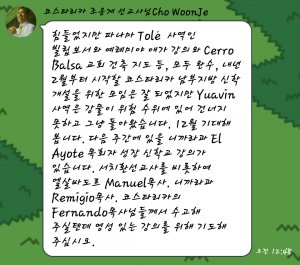 코스타리카 조운제 선교사님Cho WoonJe
힘들었지만 파나마 Tolé 사역인
빌립보서와 예레미야 애가 강의와 Cerro
Balsa 교회 건축 지도 등, 모두 완수, 내년
2월부터 시작할 코스타리카 남부지방 신학
개설을 위한 모임은 잘 되었지만 Yuavin
사역은 강물이 위험 수위에 있어 건너지
못하고 그냥 돌아왔습니다. 12월 기대해
봅니다. 다음 주간에 있을 니까라과 El
Ayote 목회자 성장 신학교 강의가
있습니다. 서치환선교사를 비롯하여
엘살바도르 Manuel목사. 니까라과
Remigio목사. 코스타리카의
Fernando목사님들께서 수고해
주실텐데 영성 있는 강의를 위해 기도해
주십시오.
오전 12:48